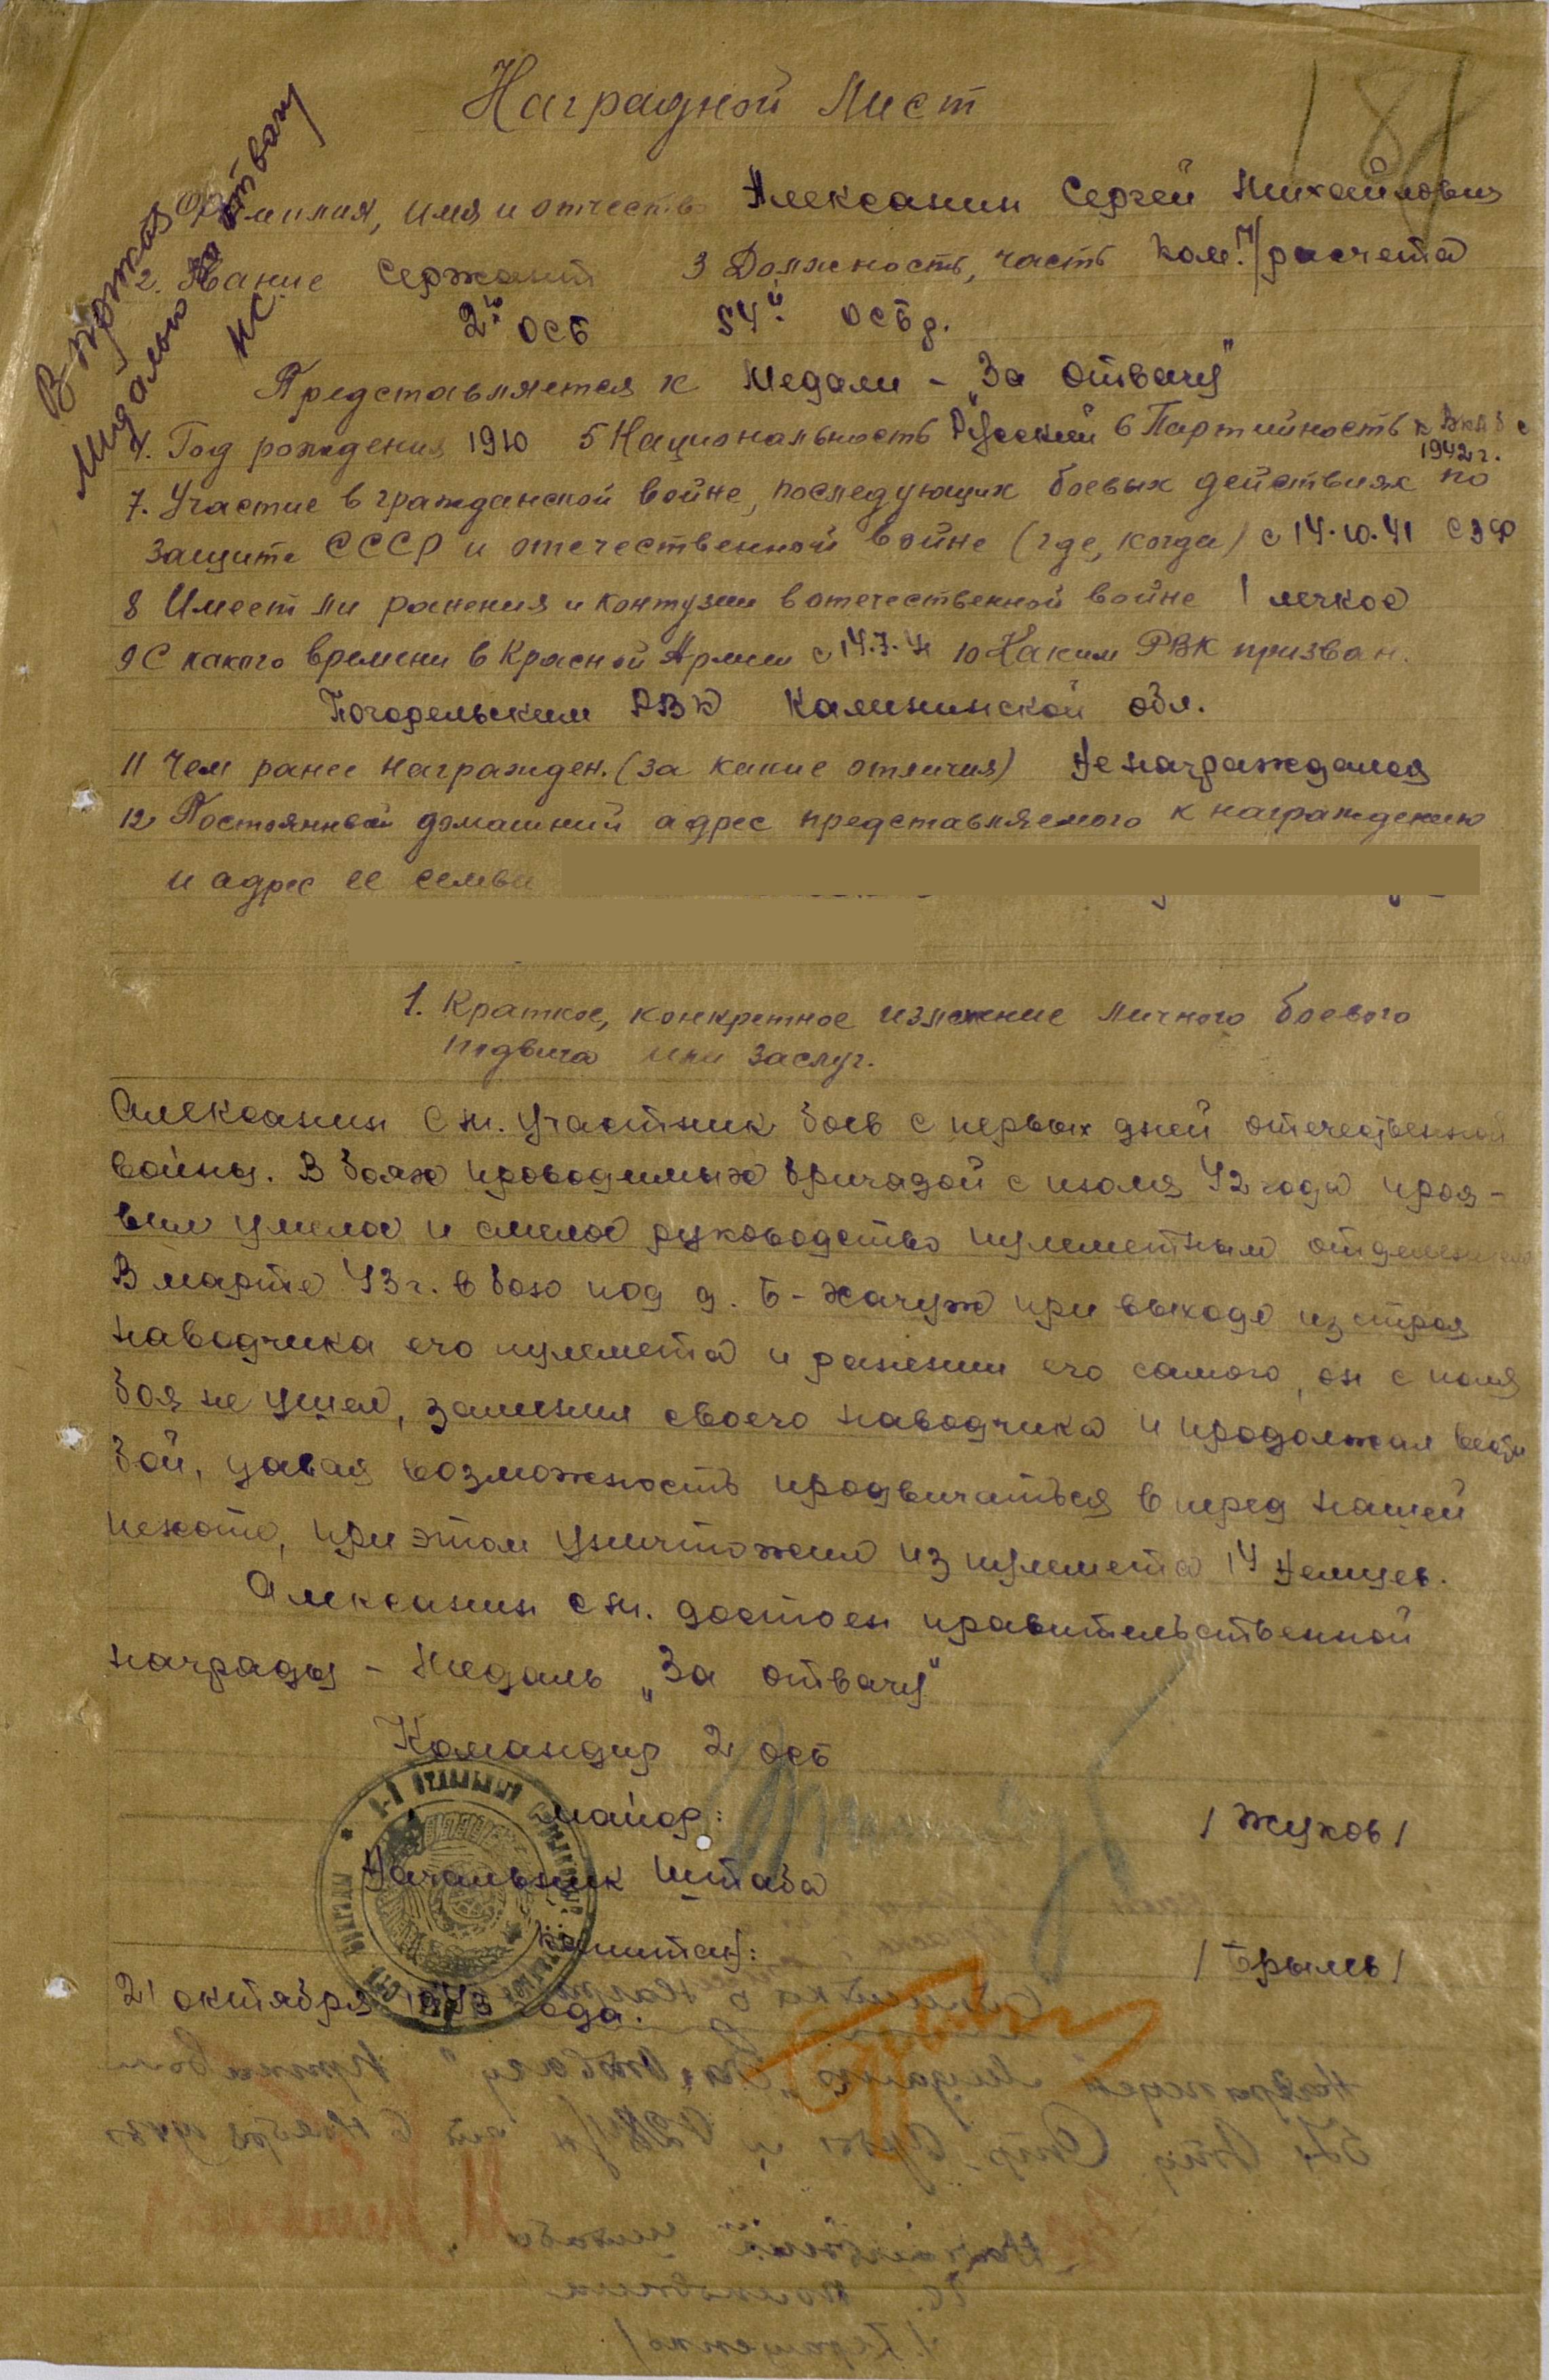 Наградной Лист
181
В приказ
Медалью за отвагу
НС
Фамилия, имя и отчество Алексанин Сергей Михайлович
2. Звание Сержант 3 Должность, часть Ком. п/расчета
2й ОСБ 54й ОСБр.
Представляется к Медали - "За Отвагу"
4. Год рождения 1910 5 Национальность Русский 6 Партийность к ВКПб с
1942 г.
7. Участие в гражданской войне, последующих боевых действиях по
защите СССР и отечественной войне (где, когда) с 14.10.41 СЗФ
8 Имеет ли ранения и контузии в отечественной войне 1 легкое
9 С какого времени в Красной Армии с 14.7.41 10 Каким РВК призван.
Погорельским РВК Калининской обл.
11 Чем ранее награжден. (за какие отличия) Не награждался
12 Постоянный домашний адрес представляемого к награждению
и адрес ее семьи
1. Краткое, конкретное изложение личного боевого
подвига или заслуг.
Алексанин С.М. участник боев с первых дней отечественной
войны. В боях проводимых бригадой с июля 42 года проя-
вил умелое и смелое руководство пулеметным отделением
В марте 43 г. в бою под д. Б-Жагуж при выходе из строя
наводчика его пулемета и ранении его самого, он с поля
боя не ушел, заменил своего наводчика и продолжал вести
бой, давая возможность продвигаться вперед нашей
пехоте, при этом уничтожил из пулемета 14 немцев.
Алексанин С.М. достоен правительственной
награды - Медаль "За отвагу"
Командир 2 осб
майор: / Жуков /
Начальник Штаба
капитан: / Брыль /
21 октября 1943 года.